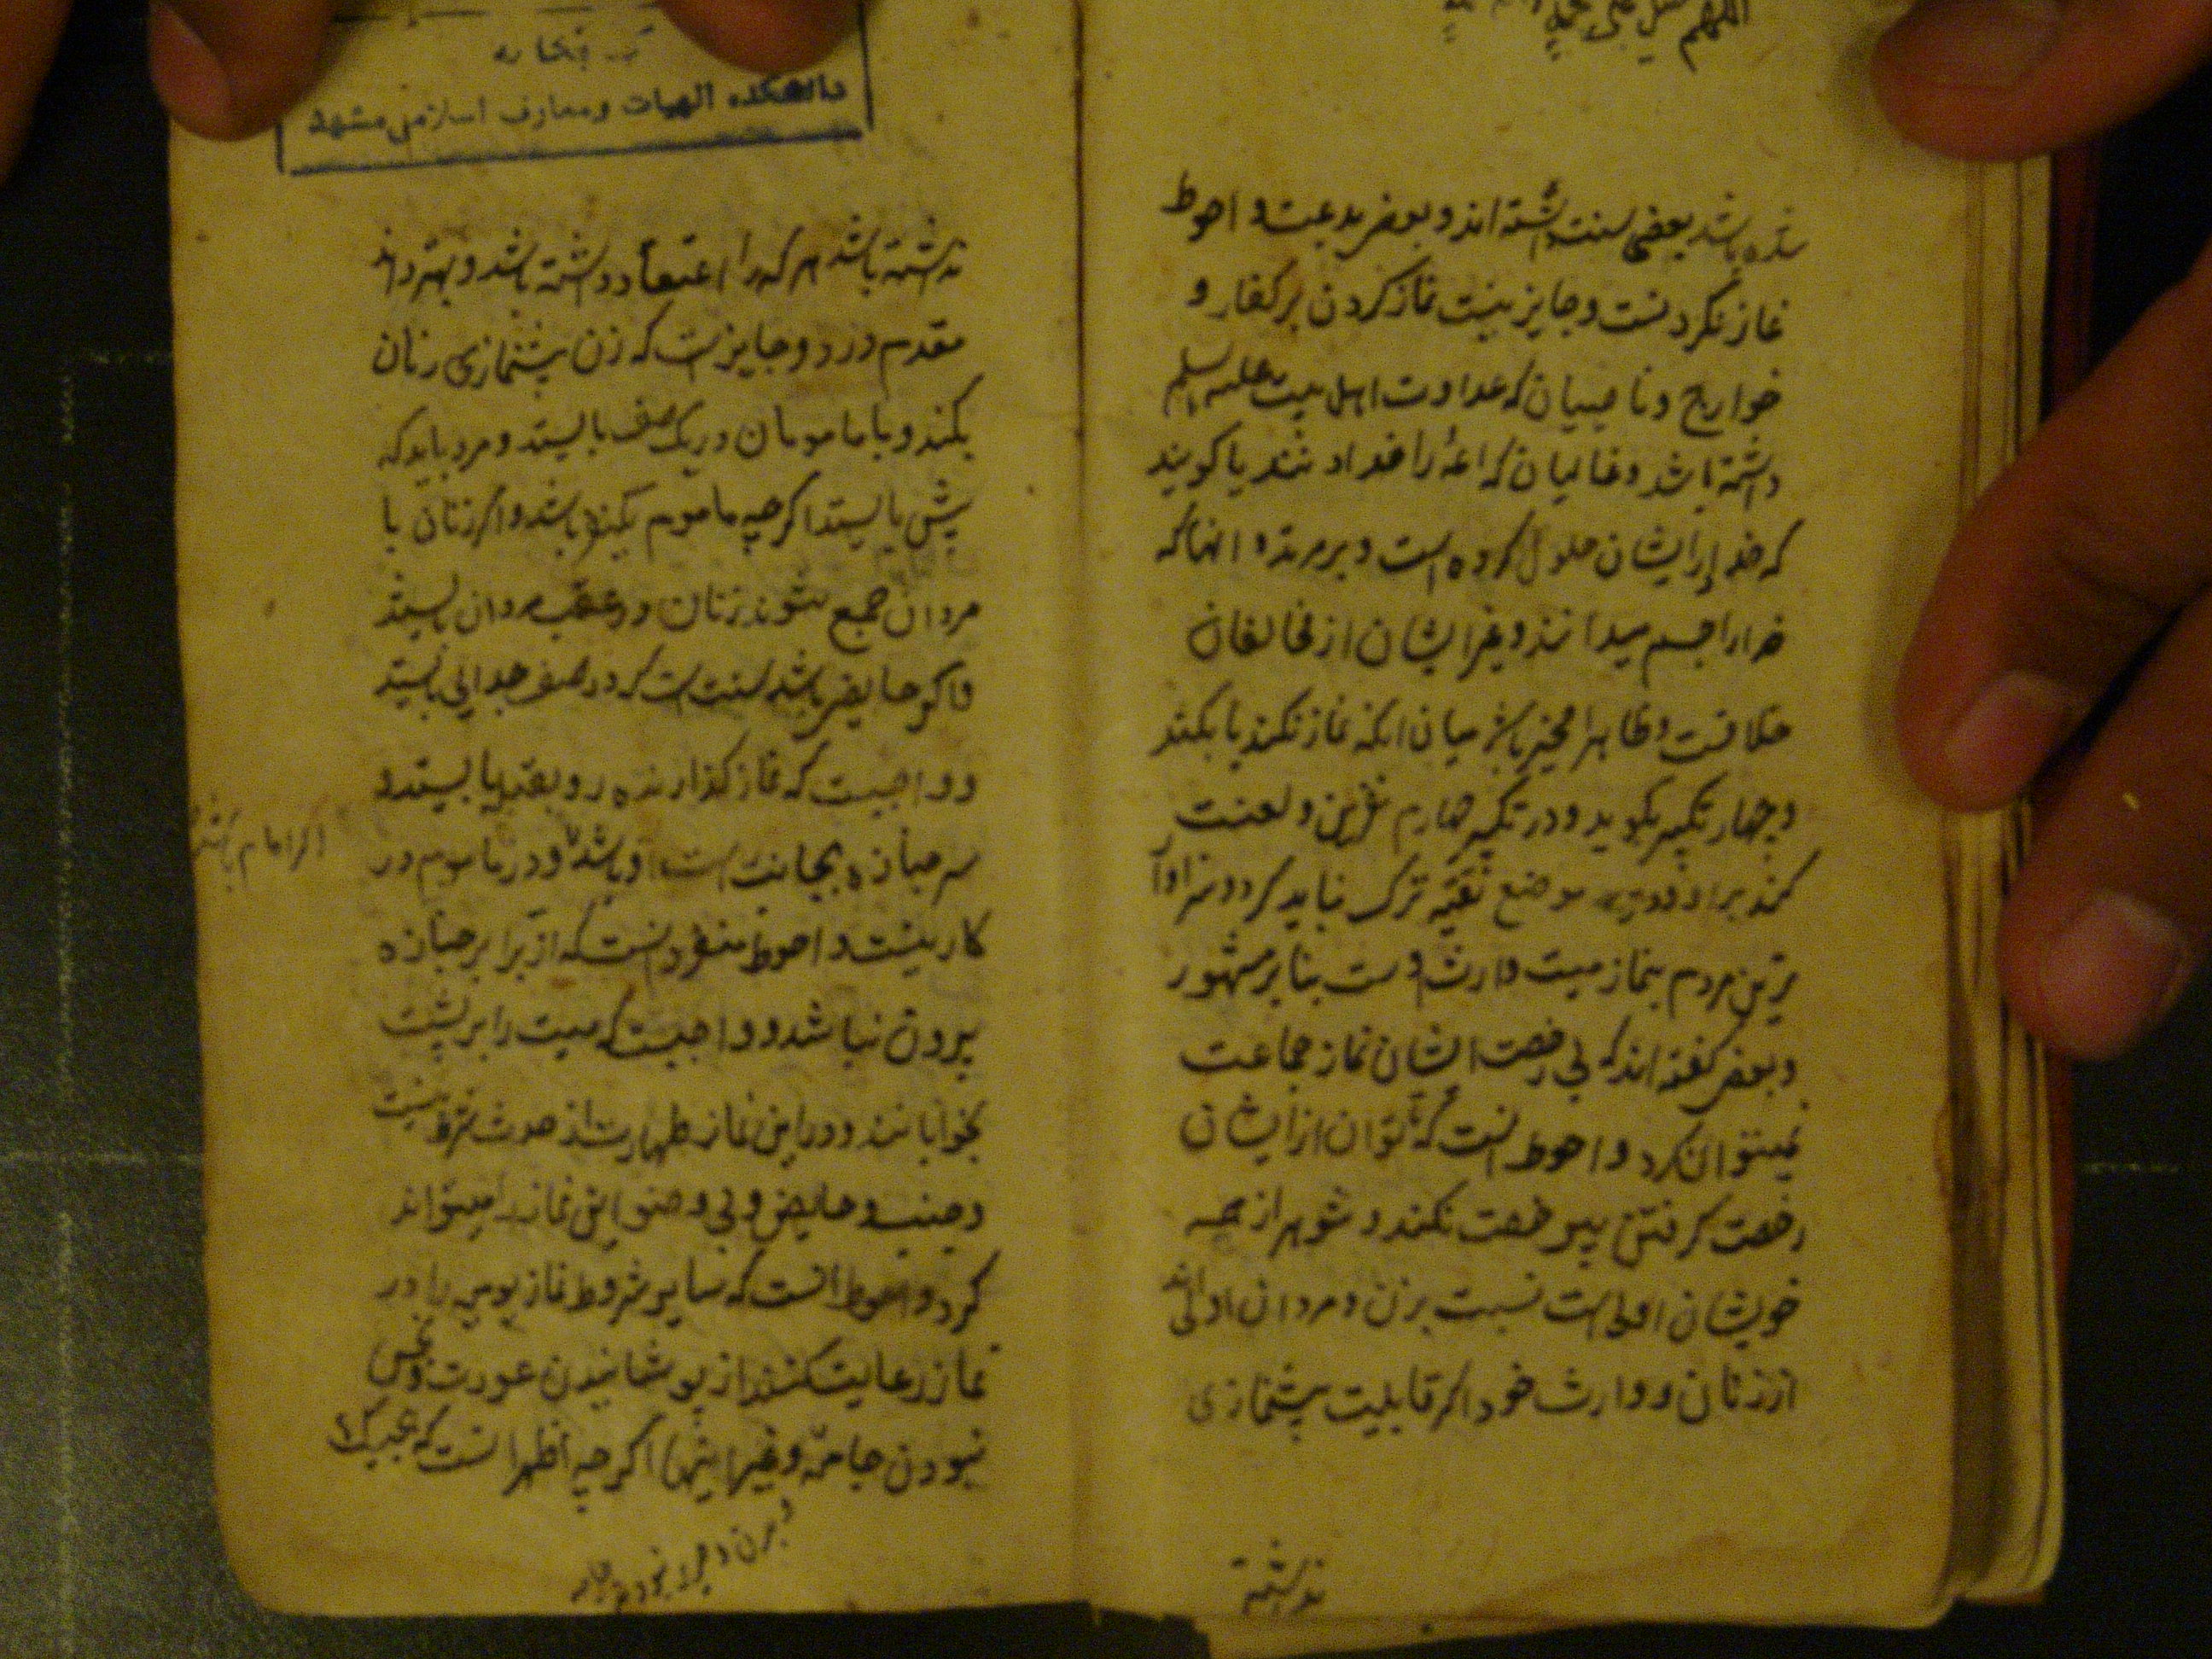 اللهم صل علی
شده باشد بعضی سنت دانسته اند و بعضی بدعت و احوط
نماز نکردنست و جایز نیست نماز کردن بر کفار و
خوارج و ناصبیان که عداوت اهل بیت علیهم السلام
داشته باشد و غالیان که ائمه را خدا دانند یا گویند
که خدا در ایشان حلول کرده است و بر مرتد و انها که
خدا را جسم میدانند و غیر ایشان از مخالفان
خلافست و ظاهرا مخیر باشد میان انکه نماز نکند یا بکند
و چهار تکبیر بگوید و در تکبیر چهارم نفرین و لعنت
کند بر او و در موضع تقیه ترک نباید کرد و سزاوار
ترین مردم بنماز میت وارث اوست بنا بر مشهور
و بعضی گفته اند که بی رخصت ایشان نماز جماعت
نمیتوان کرد و احوط انست که تا توان از ایشان
رخصت گرفتن بی رخصت نکند و شوهر از همه
خویشان اولی است نسبت بزن و مردان اولی اند
از زنان و وارث خود اگر قابلیت پیشنمازی
نداشته
دانشکده الهیات و معارف اسلامی مشهد
نداشته باشد هر که را اعتقاد داشته باشد و بهتر داند
مقدم دارد و جایز است که زن پیشنمازی زنان
بکند و با مامومان در یک صف بایستد و مرد باید که
پیش بایستد اگرچه ماموم یکنفر باشد و اگر زنان با
مردان جمع شوند زنان در عقب مردان بایستند
و اگر حایض باشد سنت است که در صف جدایی بایستد
و واجبست که نماز گذارنده رو بقبله بایستد و
سر جنازه بجانب راست او باشد و در ماموم در
اگر امام باشد
کار نیست و احوط منفرد انست که از برابر جنازه
بیرون نباشد و واجبست که میت را بر پشت
بخوابانند و در این نماز طهارت از حدث شرط نیست
و جنب و حایض و بی وضو این نماز را میتواند
کرد و احوط انست که سایر شروط نماز یومیه را در
نماز رعایت کنند از پوشانیدن عورت و نجس
نبودن جامه و غیر اینها اگرچه اظهر انست که